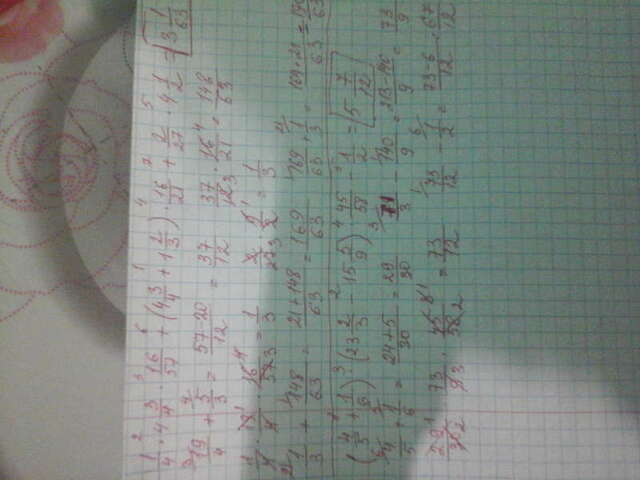 1/4 · 4 3/4 · 16/57 + (4 3/4 + 1 2/3) · 16/21 + 2/27 · 4 1/2 = 3 1/63
19/4 + 5/3 = 57-20/12 = 37/12 · 16/21 = 148/63
16/57 = 1/3 2/27 · 9/2 = 1/3
1/3 + 148/63 = 21+148/63 = 169/63 + 1/3 = 169+21/63 = 190/63
(4/5 + 1/6) · (23 2/3 - 15 5/9) · 45/58 - 1/2 = 5 7/12
4/5 + 1/6 = 24+5/30 = 29/30 71/3 - 140/9 = 213-140/9 = 73/9
29/30 · 73/9 · 45/58 = 73/12 73/12 - 1/2 = 73-6/12 = 67/12